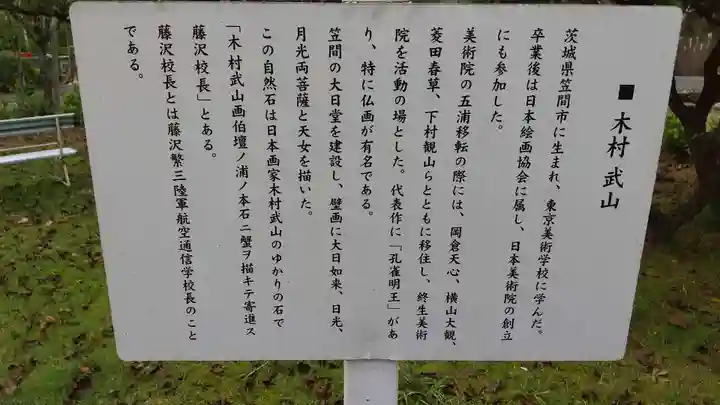 ■ 木村 武山
茨城県笠間市に生まれ、東京美術学校に学んだ。
卒業後は日本絵画協会に属し、日本美術院の創立
にも参加した。
美術院の五浦移転の際には、岡倉天心、横山大観、
菱田春草、下村観山らとともに移住し、終生美術
院を活動の場とした。代表作に「孔雀明王」があ
り、特に仏画が有名である。
笠間の大日堂を建設し、壁画に大日如来、日光、
月光両菩薩と天女を描いた。
この自然石は日本画家木村武山のゆかりの石で
「木村武山画伯壇ノ浦ノ本石ニ蟹ヲ描キテ寄進ス
藤沢校長」とある。
藤沢校長とは藤沢繁三陸軍航空通信学校長のこと
である。